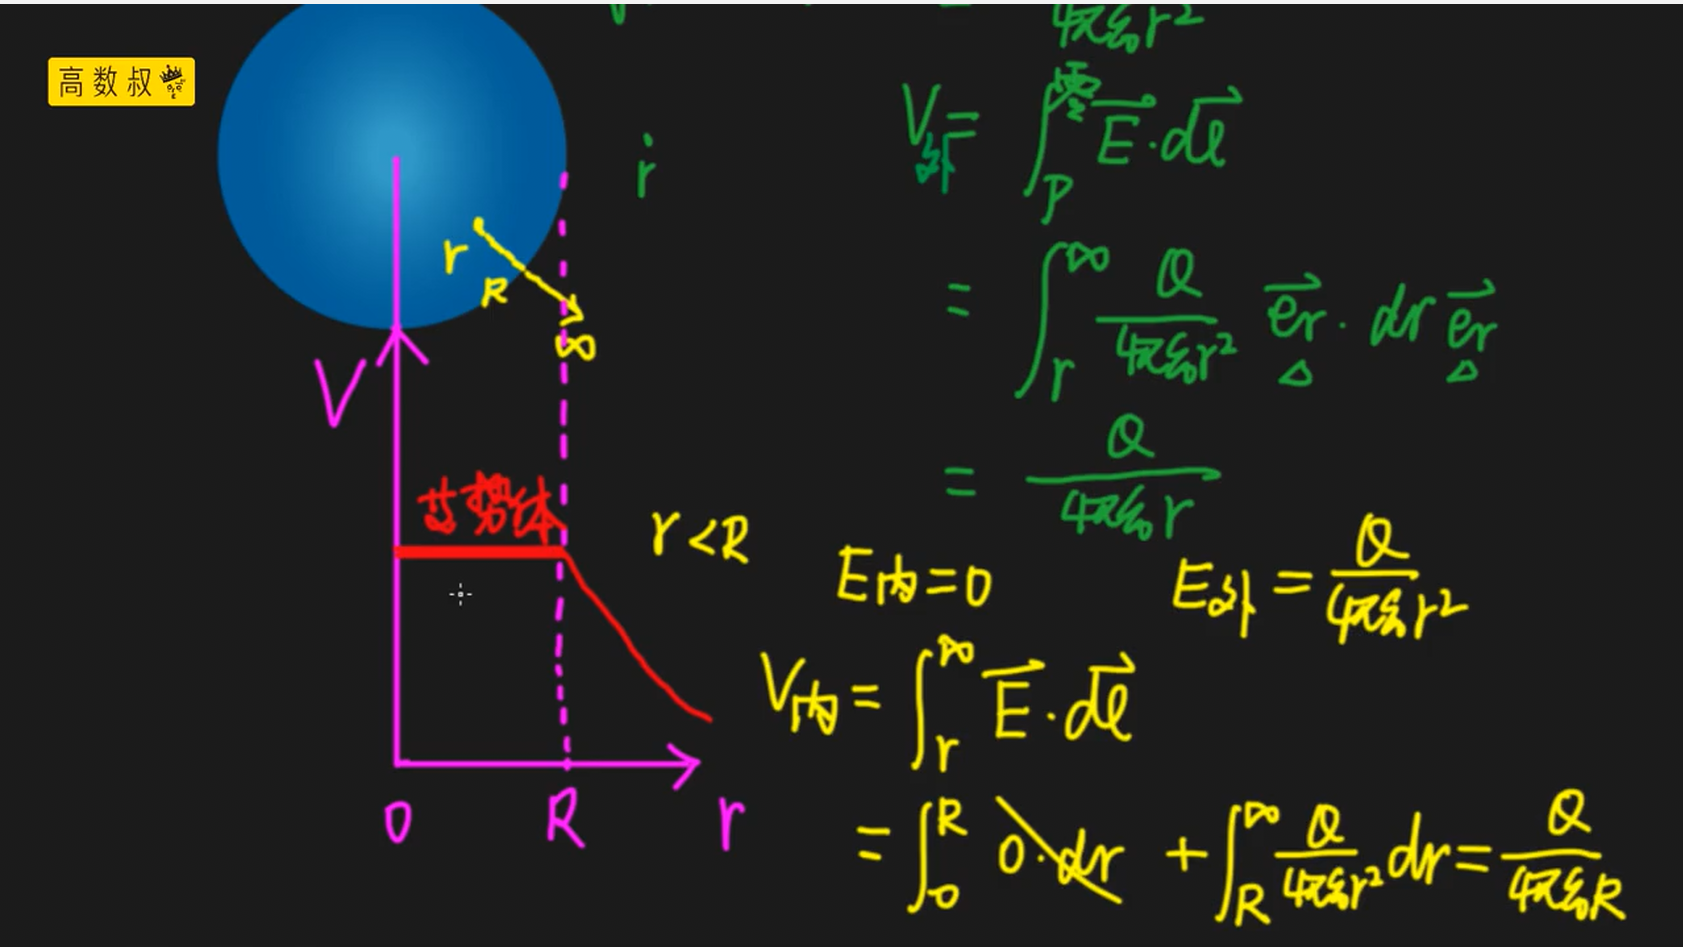 高数叔
4πε₀r²
V外 = ∫_P^零势 E⃗·dl⃗
ṙ
r
R
∞
= ∫_r^∞ Q/(4πε₀r²) e⃗r · dr e⃗r
V
= Q/(4πε₀r)
等势体
r<R
E内=0
E外 = Q/(4πε₀r²)
V内 = ∫_r^∞ E⃗·dl⃗
= ∫_0^R 0·dr + ∫_R^∞ Q/(4πε₀r²) dr = Q/(4πε₀R)
0 R r